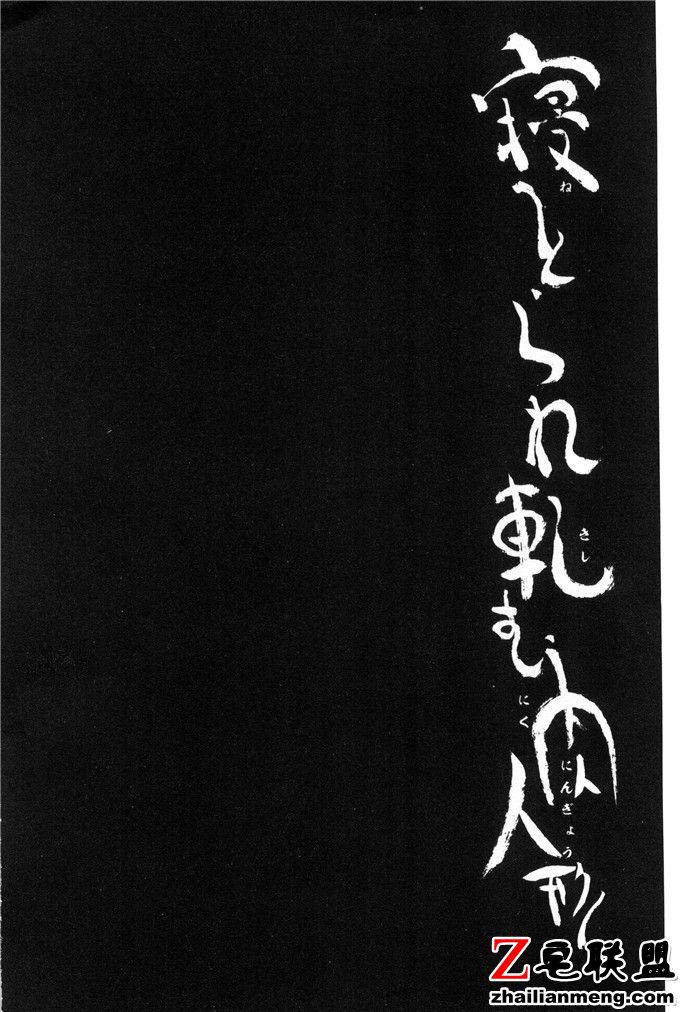 寝とられ軋む肉人形
ね
きし
にく
にんぎょう
Z宅联盟
zhailianmeng.com